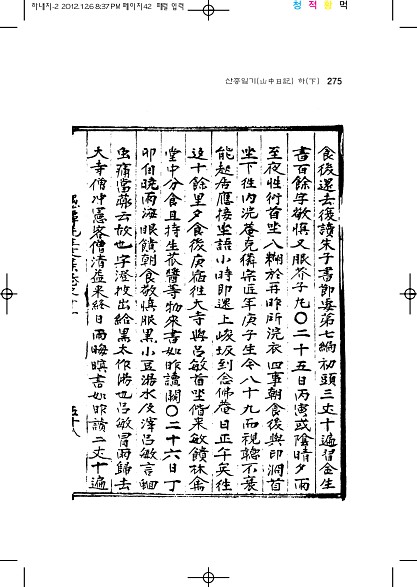 하내지-2 2012.12.6 8:37 PM 페이지42 패럴 입력
청 적 황 먹
산중일기(山中日記) 하(下) 275
食後還去復讀朱子書節要第七編初頭三丈十遍習金生
書百餘字敬慎又服芥子九〇二十五日丙寅或陰晴夕雨
至夜性衍首坐八糊於再昨所浣衣四事朝食後與印澗首
坐下徃內洗菴見俊宗匠年庚子生今八十九而視聽不衰
能起居應接坐語小時即還上峻坂到念佛庵日正午矣徃
返十餘里夕食後庚宿徃大寺與呂敏首坐偕來敏饋林禽
堂中分食且持生苽醬等物來書如昨讀闕〇二十六日丁
卯自曉雨海眼饋朝食敬慎服黑小豆湯水及滓呂敏言細
虫痛當蘇云故也字澄投出給黑太作湯也呂敏冒雨歸去
大寺僧冲憲客僧清益來終日雨晦暝書如昨讀二丈十遍
五十八